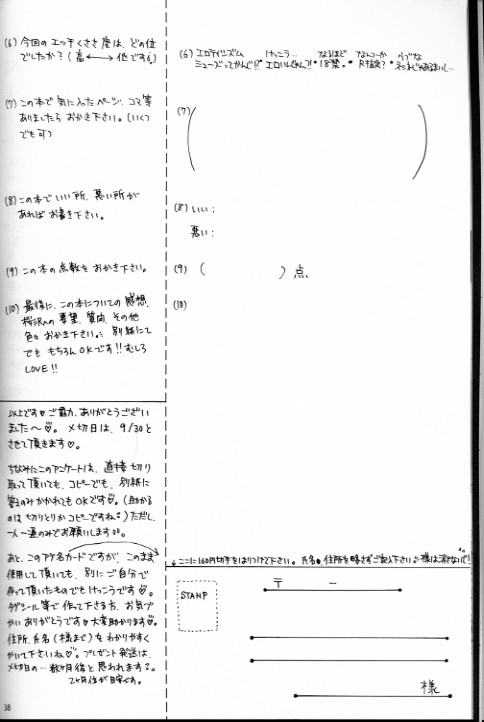 (6) 今回の エッチくささ 度は、どの位
でしたか?(高 ←→ 低です。)
(7) この本で 気に入った ページ、コマ 等
ありましたら おかき下さい。(いくつ
でも可)
(8) この本で いい所、悪い所が
あれば お書き下さい。
(9) この本の 点数を おかき下さい。
(10) 最後に、この本についての 感想、
要望、質問、その他
色々 おかき下さい。別紙にて
でも もちろん OKです!!むしろ
LOVE!!
以上です♡ご協力、ありがとうござい
ました〜♡。〆切日は、9/30と
させて頂きます♡
ちなみにこのアンケートは、直接 切り
取って頂いても、コピーでも、別紙に
答えのみかかれてもOKです♡。(助かる
のは 切りとりか コピーですね)ただし、
一人一通のみでお願いします。
あと、このアテ名カードですが、このまま
使用して頂いても、別にご自分で
作って頂いたものでもけっこうです♡。
タックシール等で作って下さる方、お気づ
かいありがとうです♡大変助かります♡。
住所、氏名(様まで)を わかりやすく
かいて下さいね♡。プレゼント発送は、
〆切日の… 数ヶ月後と思われます。
2ヶ月位が目安です。
38
(6) エロティシズム けっこう… なるほど なんつーか
ミューズってかんじ!! エロいじゃん?! 18禁。 R指定?
(7) ( )
(8) いい:
悪い:
(9) ( ) 点
(10)
↓ここに160円切手をはりつけて下さい。氏名、住所を略さずご記入下さい。様は消さないで!
STAMP
〒 －
様